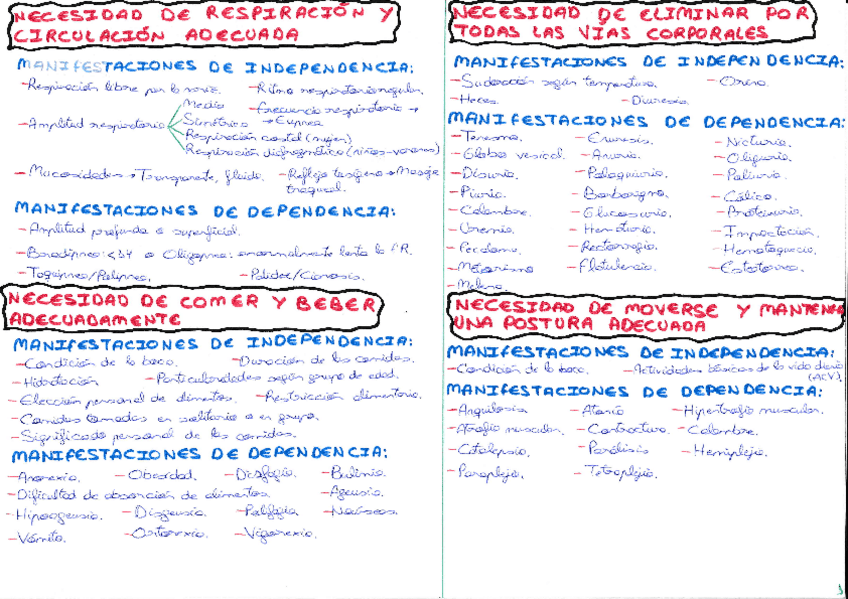 NECESIDAD DE RESPIRACIÓN Y
CIRCULACIÓN ADECUADA
MANIFESTACIONES DE INDEPENDENCIA:
-Respiración libre por la nariz. -Ritmo respiratorio regular.
-Amplitud respiratoria Media -Frecuencia respiratoria →
Simétrica → Eupnea
Respiración costal (mujer)
Respiración diafragmática (niños-varones)
- Mucosidades → Transparente, fluida. -Reflejo tusígeno → Masaje
traqueal.
MANIFESTACIONES DE DEPENDENCIA:
-Amplitud profunda o superficial.
-Bradipnea: <14 o Oligopnea: anormalmente lenta la FR.
-Taquipnea/Polipnea. -Palidez/Cianosis.
NECESIDAD DE COMER Y BEBER
ADECUADAMENTE
MANIFESTACIONES DE INDEPENDENCIA:
-Condición de la boca. -Duración de las comidas.
-Hidratación -Particularidades según grupo de edad.
-Elección personal de alimentos. -Restricción alimentaria.
-Comidas tomadas en solitario o en grupo.
-Significado personal de las comidas.
MANIFESTACIONES DE DEPENDENCIA:
-Anorexia. -Obesidad. -Disfagia. -Bulimia.
-Dificultad de absorción de alimentos -Ageusia.
-Hipogeusia. -Disgeusia. -Polifagia. -Náuseas.
-Vómito. -Ortorexia. -Vigorexia.
NECESIDAD DE ELIMINAR POR
TODAS LAS VIAS CORPORALES
MANIFESTACIONES DE INDEPENDENCIA:
-Sudoración según temperatura. -Orina.
-Heces. -Diuresis.
MANIFESTACIONES DE DEPENDENCIA:
-Tenesmo. -Enuresis. -Nicturia.
-Globo vesical. -Anuria. -Oliguria.
-Disuria. -Polaquiuria. -Poliuria.
-Piuria. -Borborigmo. -Cólico.
-Calambre. -Glucosuria. -Proteinuria.
-Uremia. -Hematuria. -Impactación.
-Fecaloma. -Rectorragia. -Hematoquecia.
-Meteorismo -Flatulencia. -Esteatorrea.
-Melena.
NECESIDAD DE MOVERSE Y MANTENER
UNA POSTURA ADECUADA
MANIFESTACIONES DE INDEPENDENCIA:
-Condición de la boca. -Actividades básicas de la vida diaria
(ACV).
MANIFESTACIONES DE DEPENDENCIA:
-Anquilosis -Atonía -Hipertrofia muscular.
-Atrofia muscular. -Contractura. -Calambre.
-Catalepsia. -Parálisis -Hemiplejia.
-Paraplejia. -Tetraplejia.